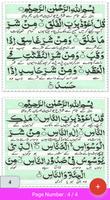 بِسْمِ اللّٰهِ الرَّحْمٰنِ الرَّحِيْمِ
قُلْ اَعُوْذُ بِرَبِّ الْفَلَقِ مِنْ شَرِّ
مَا خَلَقَ وَمِنْ شَرِّ غَاسِقٍ اِذَا
وَقَبَ وَمِنْ شَرِّ النَّفّٰثٰتِ فِى
الْعُقَدِ وَمِنْ شَرِّ حَاسِدٍ اِذَا
حَسَدَ
بِسْمِ اللّٰهِ الرَّحْمٰنِ الرَّحِيْمِ
قُلْ اَعُوْذُ بِرَبِّ النَّاسِ مَلِكِ
النَّاسِ اِلٰهِ النَّاسِ مِنْ شَرِّ
الْوَسْوَاسِ الْخَنَّاسِ الَّذِىْ
يُوَسْوِسُ فِىْ صُدُوْرِ النَّاسِ مِنَ
الْجِنَّةِ وَالنَّاسِ
4
+
Page Number: 4 / 4